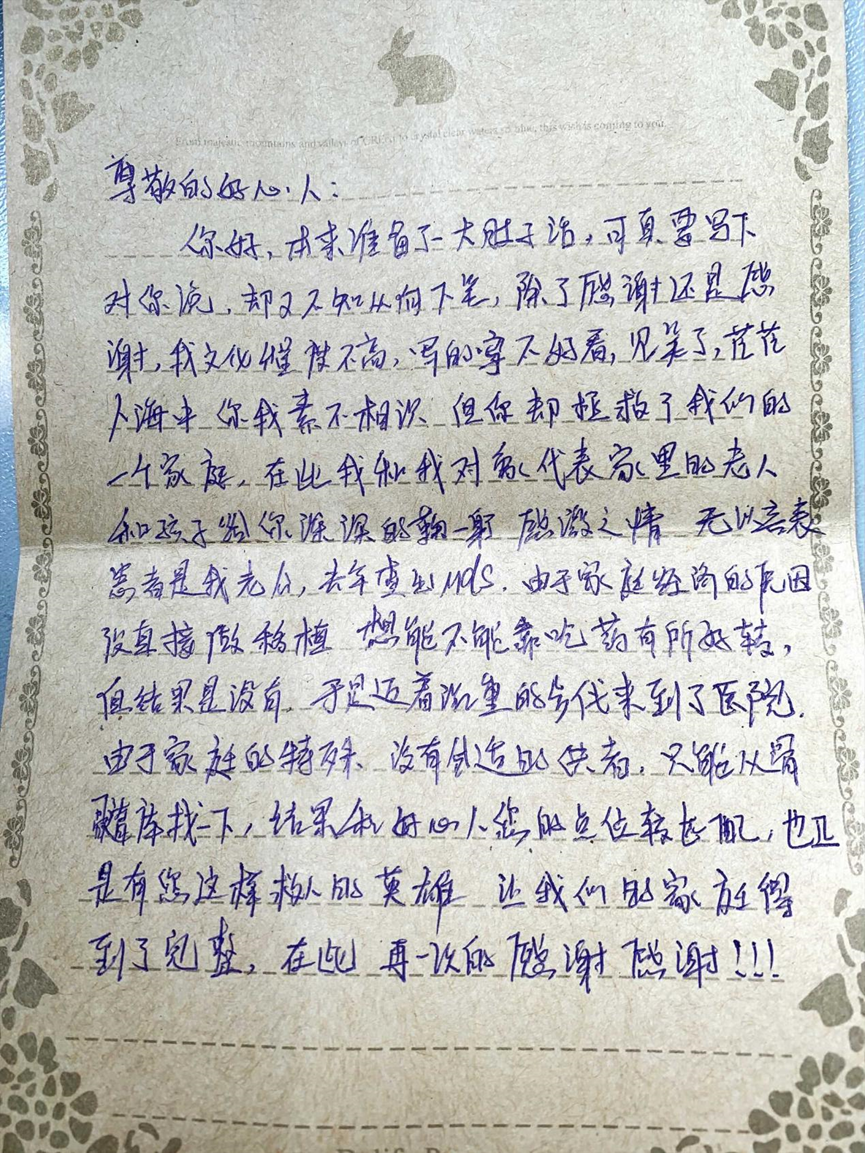 From majestic mountains and valleys of GREEN to crystal clear waters so blue, this wish is coming to you.
尊敬的好心人：
你好，本来准备了一大肚子话，可真要写下
对你说，却又不知从何下笔，除了感谢还是感
谢，我文化程度不高，写的字不好看，见笑了，茫茫
人海中 你我素不相识 但你却拯救了我们的
一个家庭，在此我和我对象代表家里的老人
和孩子给你深深的鞠一躬 感激之情 无以言表
患者是我老公，去年查出MDS．由于家庭经济的原因
没直接做移植 想能不能靠吃药有所好转，
但结果是没有．于是迈着沉重的步伐来到了医院．
由于家庭的特殊．没有合适的供者，只能从骨
髓库找一下，结果和好心人您的点位较匹配，也正
是有您这样救人的英雄 让我们的家庭得
到了完整，在此 再一次的感谢 感谢！！！